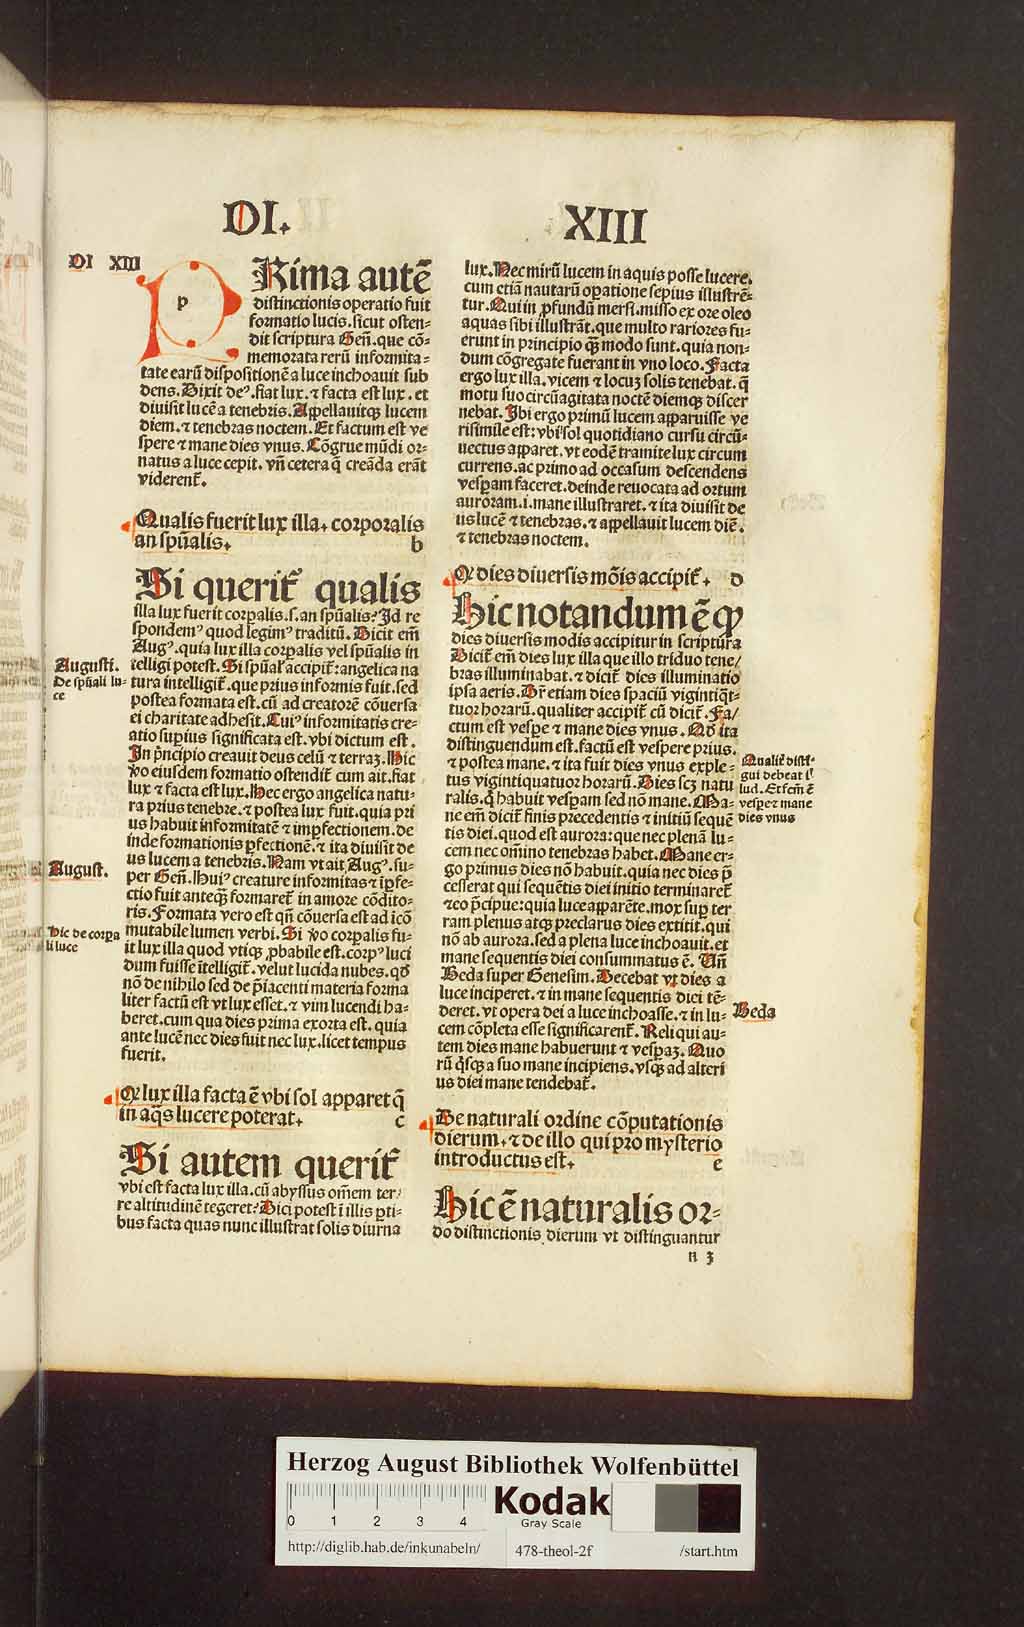 DI.
XIII
DI XIII
p
PRima autē
distinctionis operatio fuit
formatio lucis. sicut osten-
dit scriptura Geñ. que cō-
memorata rerū informita-
tate earū dispositionē a luce inchoauit sub
dens. Dixit deꝰ. fiat lux. ⁊ facta est lux. et
diuisit lucē a tenebris. Appellauitqꝫ lucem
diem. ⁊ tenebras noctem. Et factum est ve
spere ⁊ mane dies vnus. Cōgrue mūdi or-
natus a luce cepit. vñ cetera q̄ creāda erāt
viderenť.
Qualis fuerit lux illa. corporalis
an spūalis. b
Si queriť qualis
illa lux fuerit corpalis. s. an spūalis? Id re
spondemꝰ quod legimꝰ traditū. Dicit em̄
Augꝰ. quia lux illa corpalis vel spūalis in
telligi potest. Si spūal̓ accipiť: angelica na
tura intelligiť. que prius informis fuit. sed
postea formata est. cū ad creatorē cōuersa
ei charitate adhesit. Cuiꝰ informitatis cre-
atio supius significata est. vbi dictum est.
In p̄ncipio creauit deus celū ⁊ terraꝫ. Hic
ṽo eiusdem formatio ostendiť cum ait. fiat
lux ⁊ facta est lux. Hec ergo angelica natu-
ra prius tenebre. ⁊ postea lux fuit. quia pri
us habuit informitatē ⁊ imꝑfectionem. de
inde formationis ꝑfectionē. ⁊ ita diuisit de
us lucem a tenebris. Nam vt ait Augꝰ. su-
per Geñ. Huiꝰ creature informitas ⁊ iꝑfe-
ctio fuit anteqꝫ formareť in amore cōdito-
ris. Formata vero est qñ cōuersa est ad icō
mutabile lumen verbi. Si ṽo corpalis fu-
it lux illa quod vtiqꝫ ꝓbabile est. corpꝰ luci
dum fuisse ītelligiť. velut lucida nubes. qd̄
nō de nihilo sed de p̄iacenti materia forma
liter factū est vt lux esset. ⁊ vim lucendi ha-
beret. cum qua dies prima exorta est. quia
ante lucē nec dies fuit nec lux. licet tempus
fuerit.
Ꝙ lux illa facta ē vbi sol apparet q̄
in aq̄s lucere poterat. c
Si autem queriť
vbi est facta lux illa. cū abyssus om̄em ter-
re altitudinē tegeret? Dici potest ī illis ꝑti-
bus facta quas nunc illustrat solis diurna
Augusti.
De spūali lu-
ce
August.
Hic de corpa
li luce
lux. Nec mirū lucem in aquis posse lucere.
cum etiā nautarū oꝑatione sepius illustrē-
tur. Qui in ꝓfundū mersi. misso ex ore oleo
aquas sibi illustrāt. que multo rariores fu-
erunt in principio qꝫ modo sunt. quia non-
dum cōgregate fuerant in vno loco. Facta
ergo lux illa. vicem ⁊ locuꝫ solis tenebat. q̄
motu suo circūagitata noctē diemqꝫ discer
nebat. Ibi ergo primū lucem apparuisse ve
risimile est: vbi sol quotidiano cursu circū-
uectus apparet. vt eodē tramite lux circum
currens. ac primo ad occasum descendens
vesꝑam faceret. deinde reuocata ad ortum
auroram. i. mane illustraret. ⁊ ita diuisit de
us lucē ⁊ tenebras. ⁊ appellauit lucem diē.
⁊ tenebras noctem.
Ꝙ dies diuersis mōis accipiť. d
Hic notandum ē ꝙ
dies diuersis modis accipitur in scriptura
Diciť em̄ dies lux illa que illo triduo tene/
bras illuminabat. ⁊ diciť dies illuminatio
ipsa aeris. Dr̄ etiam dies spaciū vigintiq̄t-
tuor horarū. qualiter accipiť cū diciť. Fa/
ctum est vespe ⁊ mane dies vnus. Qd̄ ita
distinguendum est. factū est vespere prius.
⁊ postea mane. ⁊ ita fuit dies vnus exple-
tus vigintiquatuor horarū. Dies scꝫ natu
ralis. q̄ habuit vesꝑam sed nō mane. Ma-
ne em̄ diciť finis precedentis ⁊ initiū sequē
tis diei. quod est aurora: que nec plenā lu-
cem nec om̄ino tenebras habet. Mane er-
go primus dies nō habuit. quia nec dies p̄
cesserat qui sequētis diei initio terminareť
⁊ eo p̄cipue: quia luce apparēte. mox suꝑ ter
ram plenus atqꝫ preclarus dies extitit. qui
nō ab aurora. sed a plena luce inchoauit. et
mane sequentis diei consummatus ē. Uñ
Beda super Genesim. Decebat vt dies a
luce inciperet. ⁊ in mane sequentis diei tē-
deret. vt opera dei a luce inchoasse. ⁊ in lu-
cem cōpleta esse significarenť. Reliqui au-
tem dies mane habuerunt ⁊ vesꝑaꝫ. Quo
rū q̓sqꝫ a suo mane incipiens. vsqꝫ ad alteri
us diei mane tendebať.
De naturali ordine cōputationis
dierum. ⁊ de illo qui pro mysterio
introductus est. e
Hic ē naturalis or-
do distinctionis dierum vt distinguantur
n 3
Qualiť disti-
gui debeat il̓
lud. Et fcm̄ ē
vespe ⁊ mane
dies vnus
Beda
Herzog August Bibliothek Wolfenbüttel
0 1 2 3 4
Kodak
Gray Scale
http://diglib.hab.de/inkunabeln/ 478-theol-2f /start.htm